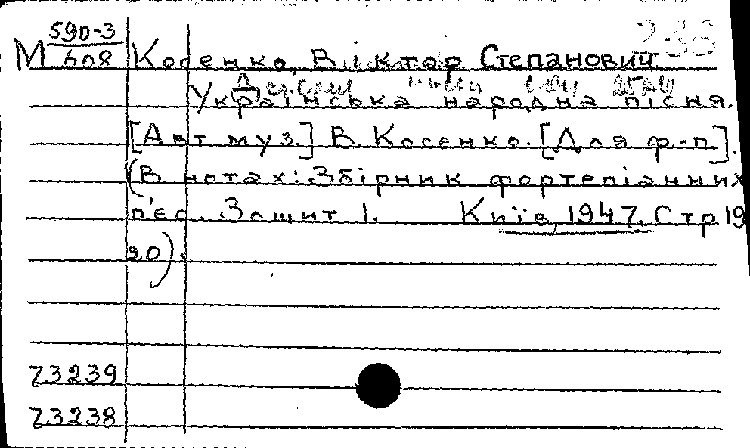 590-3
М 608 Косенко, Віктор Степанович
Українська народна пісня.
[Авт муз.] В. Косенко. [Для ф-п].
(В нотах: Збірник фортепіанних
п'єс. Зошит 1. Київ, 1947. Стр 19
20).
73239
73238